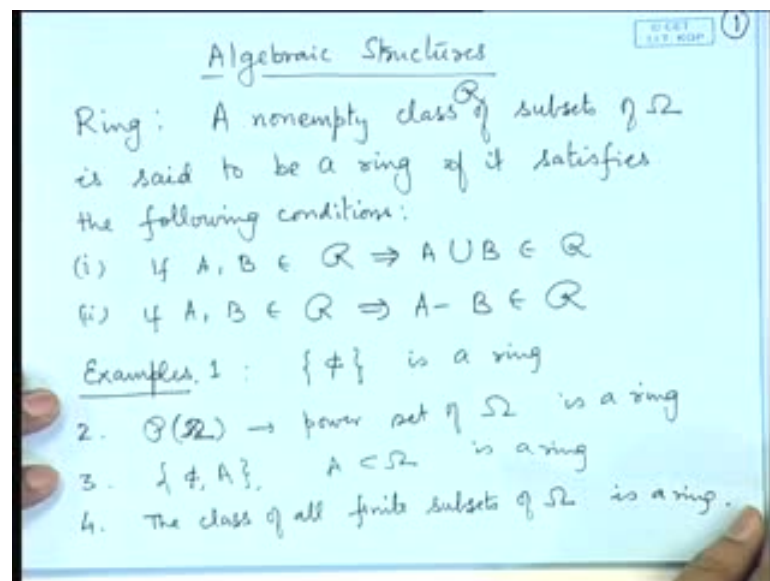 © CET
I.I.T. KGP
1
Algebraic Structures
Ring : A nonempty class R of subsets of Ω
is said to be a ring if it satisfies
the following conditions :
(i) If A, B ∈ R ⇒ A ∪ B ∈ R
(ii) If A, B ∈ R ⇒ A - B ∈ R
Examples. 1 : { ϕ } is a ring
2. P(Ω) → power set of Ω is a ring
3. { ϕ, A }, A ⊂ Ω is a ring
4. The class of all finite subsets of Ω is a ring.